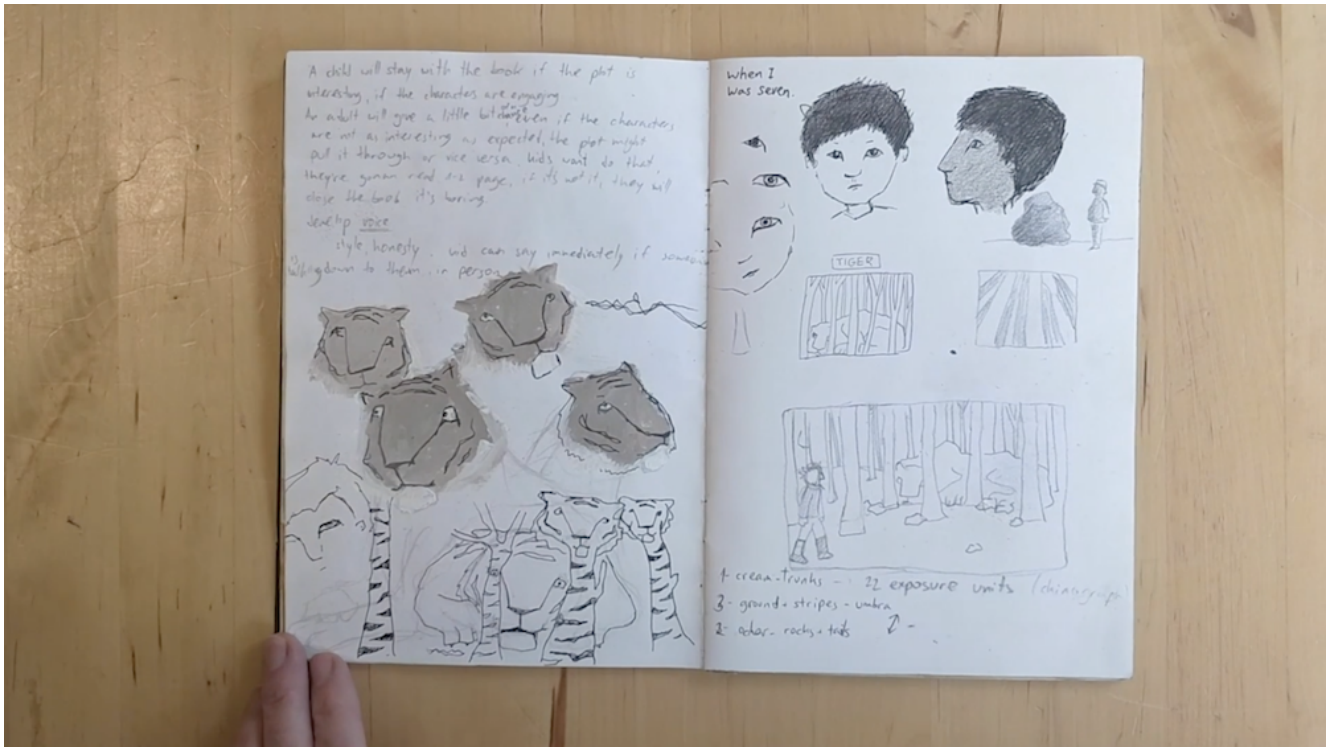 A child will stay with the book if the plot is
interesting, if the characters are engaging
An adult will give a little bit even if the characters
are not as interesting as expected, the plot might
pull it through or vice versa. kids wont do that,
they're gunna read a page, if it's not it, they will
close the book it's boring.
Develip voice
style, honesty. kid can say immediately if someone
talking down to them, in person
when I
was seven.
TIGER
1- cream-trunks - 22 exposure units (chinagraph)
3- ground + stripes - umbra
2- ochar - rocks + tails